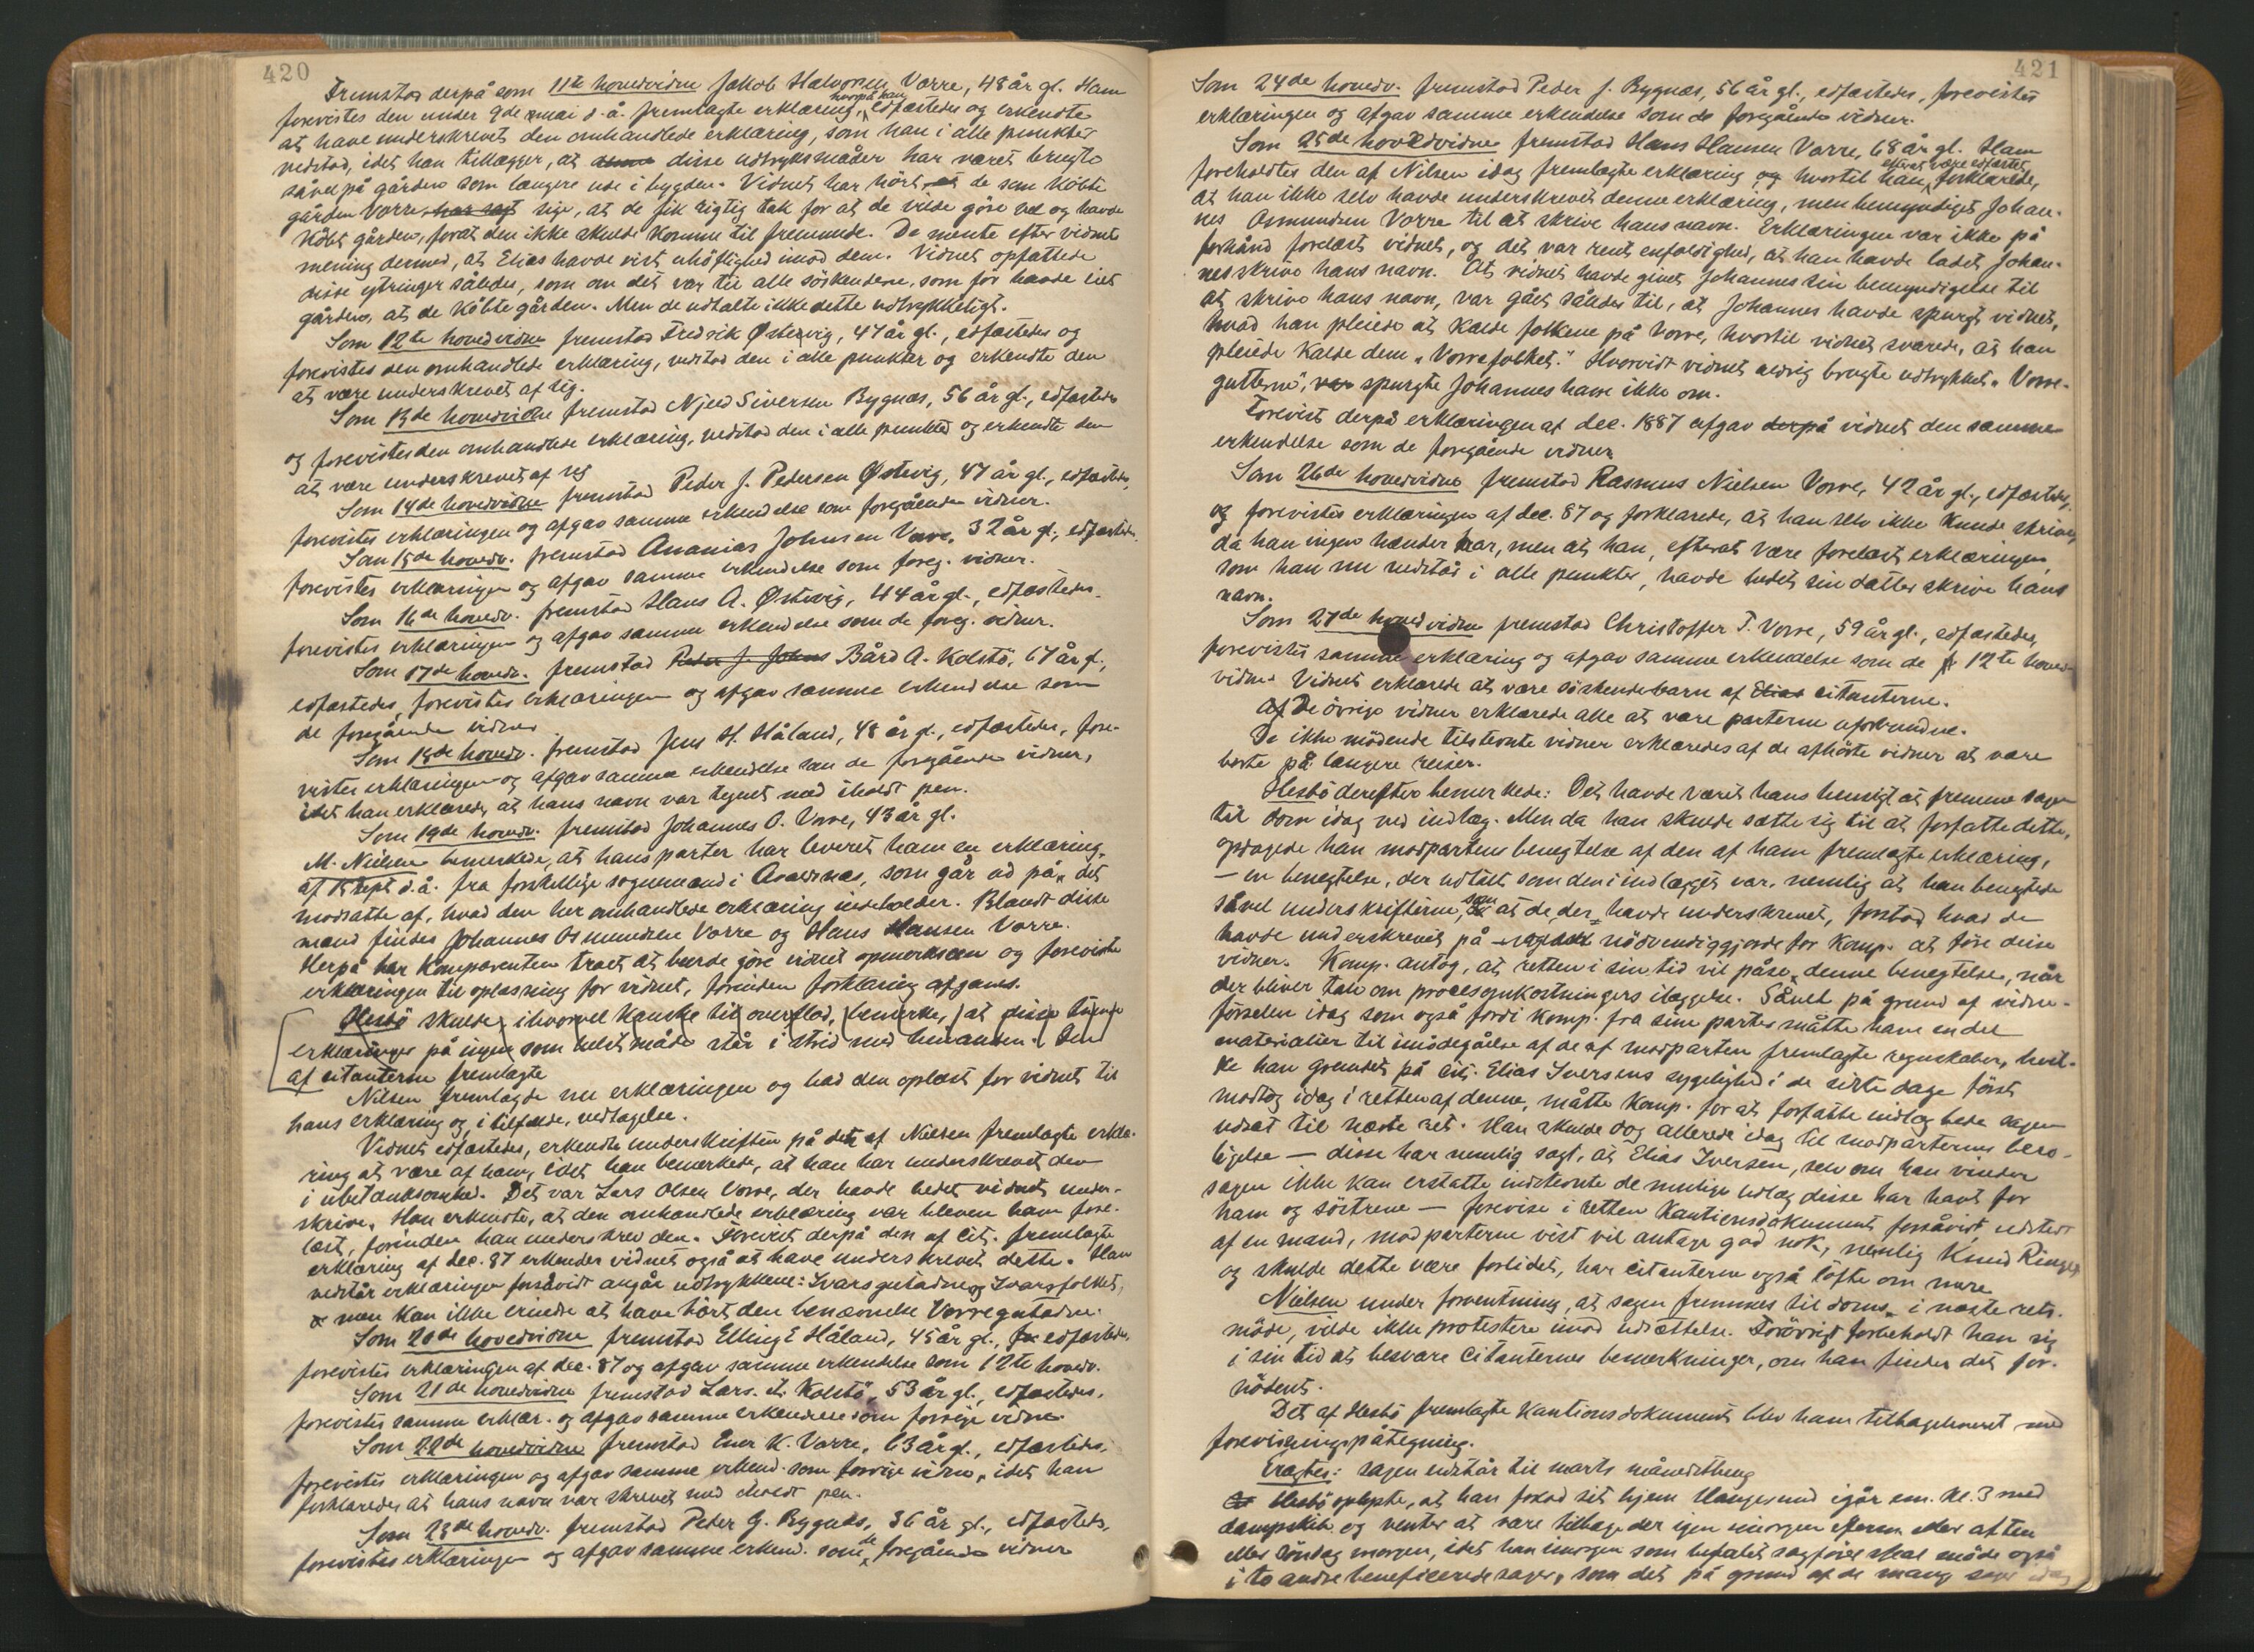 420
Fremstod derpå som 11te hovedvidne Jakob Halvorsen Vorre, 48 år gl. Ham
forevistes den under 9de mai d.å. fremlagte erklæring, hvorpå han edfæstedes og erkendte
at have underskrevet den omhandlede erklæring, som han i alle punkter
vedstod, idet han tillægger, at disse udtryksmåder har været brugte
såvel på gården som længere ude i bygden. Vidnet har hört, at de som köbte
gården Vorre, har sagt sige, at de fik rigtig tak for at de vilde göre vel og havde
köbt gården, forat den ikke skulde komme til fremmede. De mente efter vidnets
mening dermed, at Elias havde vist uhöflighed imod dem. Vidnet opfattede
disse ytringer således, som om det var til alle söskendene, som för havde eiet
gården, at de köbte gården. Men de udtalte ikke dette udtrykkeligt.
Som 12te hovedvidne fremstod Fredrik Østevig, 47 år gl., edfæstedes og
forevistes den omhandlede erklæring, vedstod den i alle punkter og erkendte den
at være underskrevet af sig.
Som 13de hovedvidne fremstod Njeld Siversen Bygnæs, 56 år gl., edfæstedes
og forevistes den omhandlede erklæring, vedstod den i alle punkter og erkendte den
at være underskrevet af sig
Som 14de hovedvidne fremstod Peder J. Pedersen Østevig, 47 år gl., edfæstedes,
forevistes erklæringen og afgav samme erkendelse som foregående vidner.
Som 15de hovedv. fremstod Ananias Johnsen Vorre, 32 år gl., edfæstedes.
forevistes erklæringen og afgav samme erkendelse som foreg. vidner.
Som 16de hovedv. fremstod Hans A. Østevig, 44 år gl., edfæstedes.
forevistes erklæringen og afgav samme erkendelse som de foreg. vidner.
Som 17de hovedv. fremstod Peder J. Johns Bård A. Kolstö, 67 år gl.,
edfæstedes, forevistes erklæringen og afgav samme erkendelse som
de foregående vidner
Som 18de hovedv. fremstod Jens H. Håland, 48 år gl., edfæstedes, fore-
vistes erklæringen og afgav samme erkendelse som de foregående vidner,
idet han erklærede, at hans navn var tegnet med iholdt pen.
Som 19de hovedv. fremstod Johannes O. Vorre, 43 år gl.
M. Nielsen bemærkede, at hans parter har leveret ham en erklæring,
af 15 sept. d.å. fra forskellige sognemænd i Avaldsnæs, som går ud på det
modsatte af, hvad den her omhandlede erklæring indeholder. Blandt disse
mænd findes Johannes Osmundsen Vorre og Hans Hansen Vorre.
Herpå har komparenten troet at burde göre vidnet opmerksom og foreviste
erklæringen til oplæsning for vidnet, forinden forklaring afgaves.
Hesbö skulde, ihvorvel kanske til overflod, bemerke, at disse tvende
erklæringer på ingen som helst måde står i strid med hinanden. Den
af citanterne fremlagte
Nilsen fremlagde nu erklæringen og bad den oplæst for vidnet til
hans erklæring og, i tilfælde, vedtagelse.
Vidnet edfæstedes, erkendte underskriften på den af Nielsen fremlagte erklæ-
ring at være af ham, idet han bemærkede, at han har underskrevet den
i ubetænksomhed. Det var Lars Olsen Vorre, der havde bedet vidnet under-
skrive. Han erkendte, at den omhandlede erklæring var bleven ham fore-
læst, forinden han underskrev den. Forevist derpå den af Cit. fremlagte
erklæring af dec. 87 erkender vidnet også at have underskrevet dette. Han
vedstår erklæringen forsåvidt angår udtrykkene: Ivarsgutadne og Ivarsfolket,
men kan ikke erindre at have hört den benævnelse Vorregutadne.
Som 20de hovedvidne fremstod Elling E Håland, 45 år gl., edfæstedes,
forevistes erklæringen af dec. 87 og afgav samme erkendelse som 12te hovedv.
Som 21de hovedvidne fremstod Lars. A. Kolstö, 53 år gl., edfæstedes,
forevistes samme erklær. og afgav samme erkendelse som forrige vidne.
Som 22de hovedvidne fremstod Ener K. Vorre, 63 år gl., edfæstedes,
forevistes erklæringen og afgav samme erkend. som forrige vidne, idet han
forklarede, at hans navn var skrevet med iholdt pen.
Som 23de hovedv. fremstod Peder G. Bygnæs, 36 år gl., edfæstedes,
forevistes erklæringen og afgav samme erkend. som de foregående vidner
421
Som 24de hovedv. fremstod Peder J. Bygnæs, 56 år gl., edfæstedes, forevistes
erklæringen og afgav samme erkendelse som de foregående vidner.
Som 25de hovedvidne fremstod Hans Hansen Vorre, 68 år gl. Ham
foreholdtes den af Nilsen idag fremlagte erklæring og hvortil han, efterat være edfæstet, forklarede,
at han ikke selv havde underskrevet denne erklæring, men bemyndiget Johan-
nes Osmundsen Vorre til at skrive hans navn. Erklæringen var ikke på
forhånd forelæst vidnet, og det var rent enfoldighed, at han havde ladet Johan-
nes skrive hans navn. At vidnet havde givet Johannes sin bemyndigelse til
at skrive hans navn, var gået således til, at Johannes havde spurgt vidnet,
hvad han pleiede at kalde folkene på Vorre, hvortil vidnet svarede, at han
pleiede kalde dem „Vorrefolket.“ Hvorvidt vidnet aldrig brugte udtrykket „Vorre-
gutterne“, spurgte Johannes ham ikke om.
Forevist derpå erklæringen af dec. 1887 afgav derpå vidnet den samme
erkendelse som de foregående vidner
Som 26de hovedvidne fremstod Rasmus Nielsen Vorre, 42 år gl., edfæstedes,
og forevistes erklæringen af dec. 87 og forklarede, at han selv ikke kunde skrive,
da han ingen hænder har, men at han, efterat være forelæst erklæringen,
som han nu vedstår i alle punkter, havde bedet sin datter skrive hans
navn.
Som 27de hovedvidne fremstod Christoffer T. Vorre, 59 år gl., edfæstedes,
forevistes samme erklæring og afgav samme erkendelse som de 12te hoved-
vidne. Vidnet erklærede at være söskendebarn af Elias citanterne.
Af De övrige vidner erklærede alle at være parterne uforbundne.
De ikke mödende tilstevnte vidner erklæredes af de afhörte vidner at være
borte på længere reiser.
Hesbö derefter bemerkede: Det havde været hans hensigt at fremme sagen
til dom idag ved indlæg. Men da han skulde sætte sig til at forfatte dette,
opdagede han modpartens benegtelse af den af ham fremlagte erklæring,
— en benegtelse, der udtalt som den i indlægget var, nemlig at han benegtede
såvel underskrifterne, som at de, der havde underskrevet, forstod hvad de
havde underskrevet på — nödvendiggjorde for komp. at före disse
vidner. Komp. antog, at retten i sin tid vil påse denne benegtelse, når
der bliver tale om procesomkostningers ilæggelse. Såvel på grund af vidne-
förselen idag som også fordi komp. fra sine parter måtte have en del
materialier til imödegåelse af de af modparten fremlagte regnskaber, hvil-
ke han grundet på cit. Elias Iversens sygelighed i de sidste dage först
modtog idag i retten af denne, måtte komp. for at forfatte indlæg bede sagen
udsat til næste ret. Han skulde dog allerede idag til modparternes bero-
ligelse — disse har nemlig sagt, at Elias Iversen, selv om han vinder
sagen ikke kan erstatte indstevnte de mulige udlæg disse har havt for
ham og söstrene — forevise i retten kautionsdokument forsåvidt udstedt
af en mand, modparterne vist vil antage god nok, nemlig Knud Ringen
og skulde dette være forlidet, har citanterne også löfte om mere
Nielsen under forventning, at sagen fremmes til doms i næste rets-
möde, vilde ikke protestere imod udsættelse. Forövrigt forbeholdt han sig
i sin tid at besvare Citanternes bemerkninger, om han finder det for-
nödent.
Det af Hesbö fremlagte kautionsdokument blev ham tilbageleveret med
forevisningspåtegning.
Eragtes: sagen udstår til marts månedsthing
Hesbö oplyste, at han forlod sit hjem Haugesund igår em. kl. 3 med
dampskib og venter at være tilbage der igen imorgen efterm eller aften
eller söndag morgen, idet han imorgen som befalet sagförer skal möde også
i to andre beneficerede sager, som det på grund af de mange sager idag